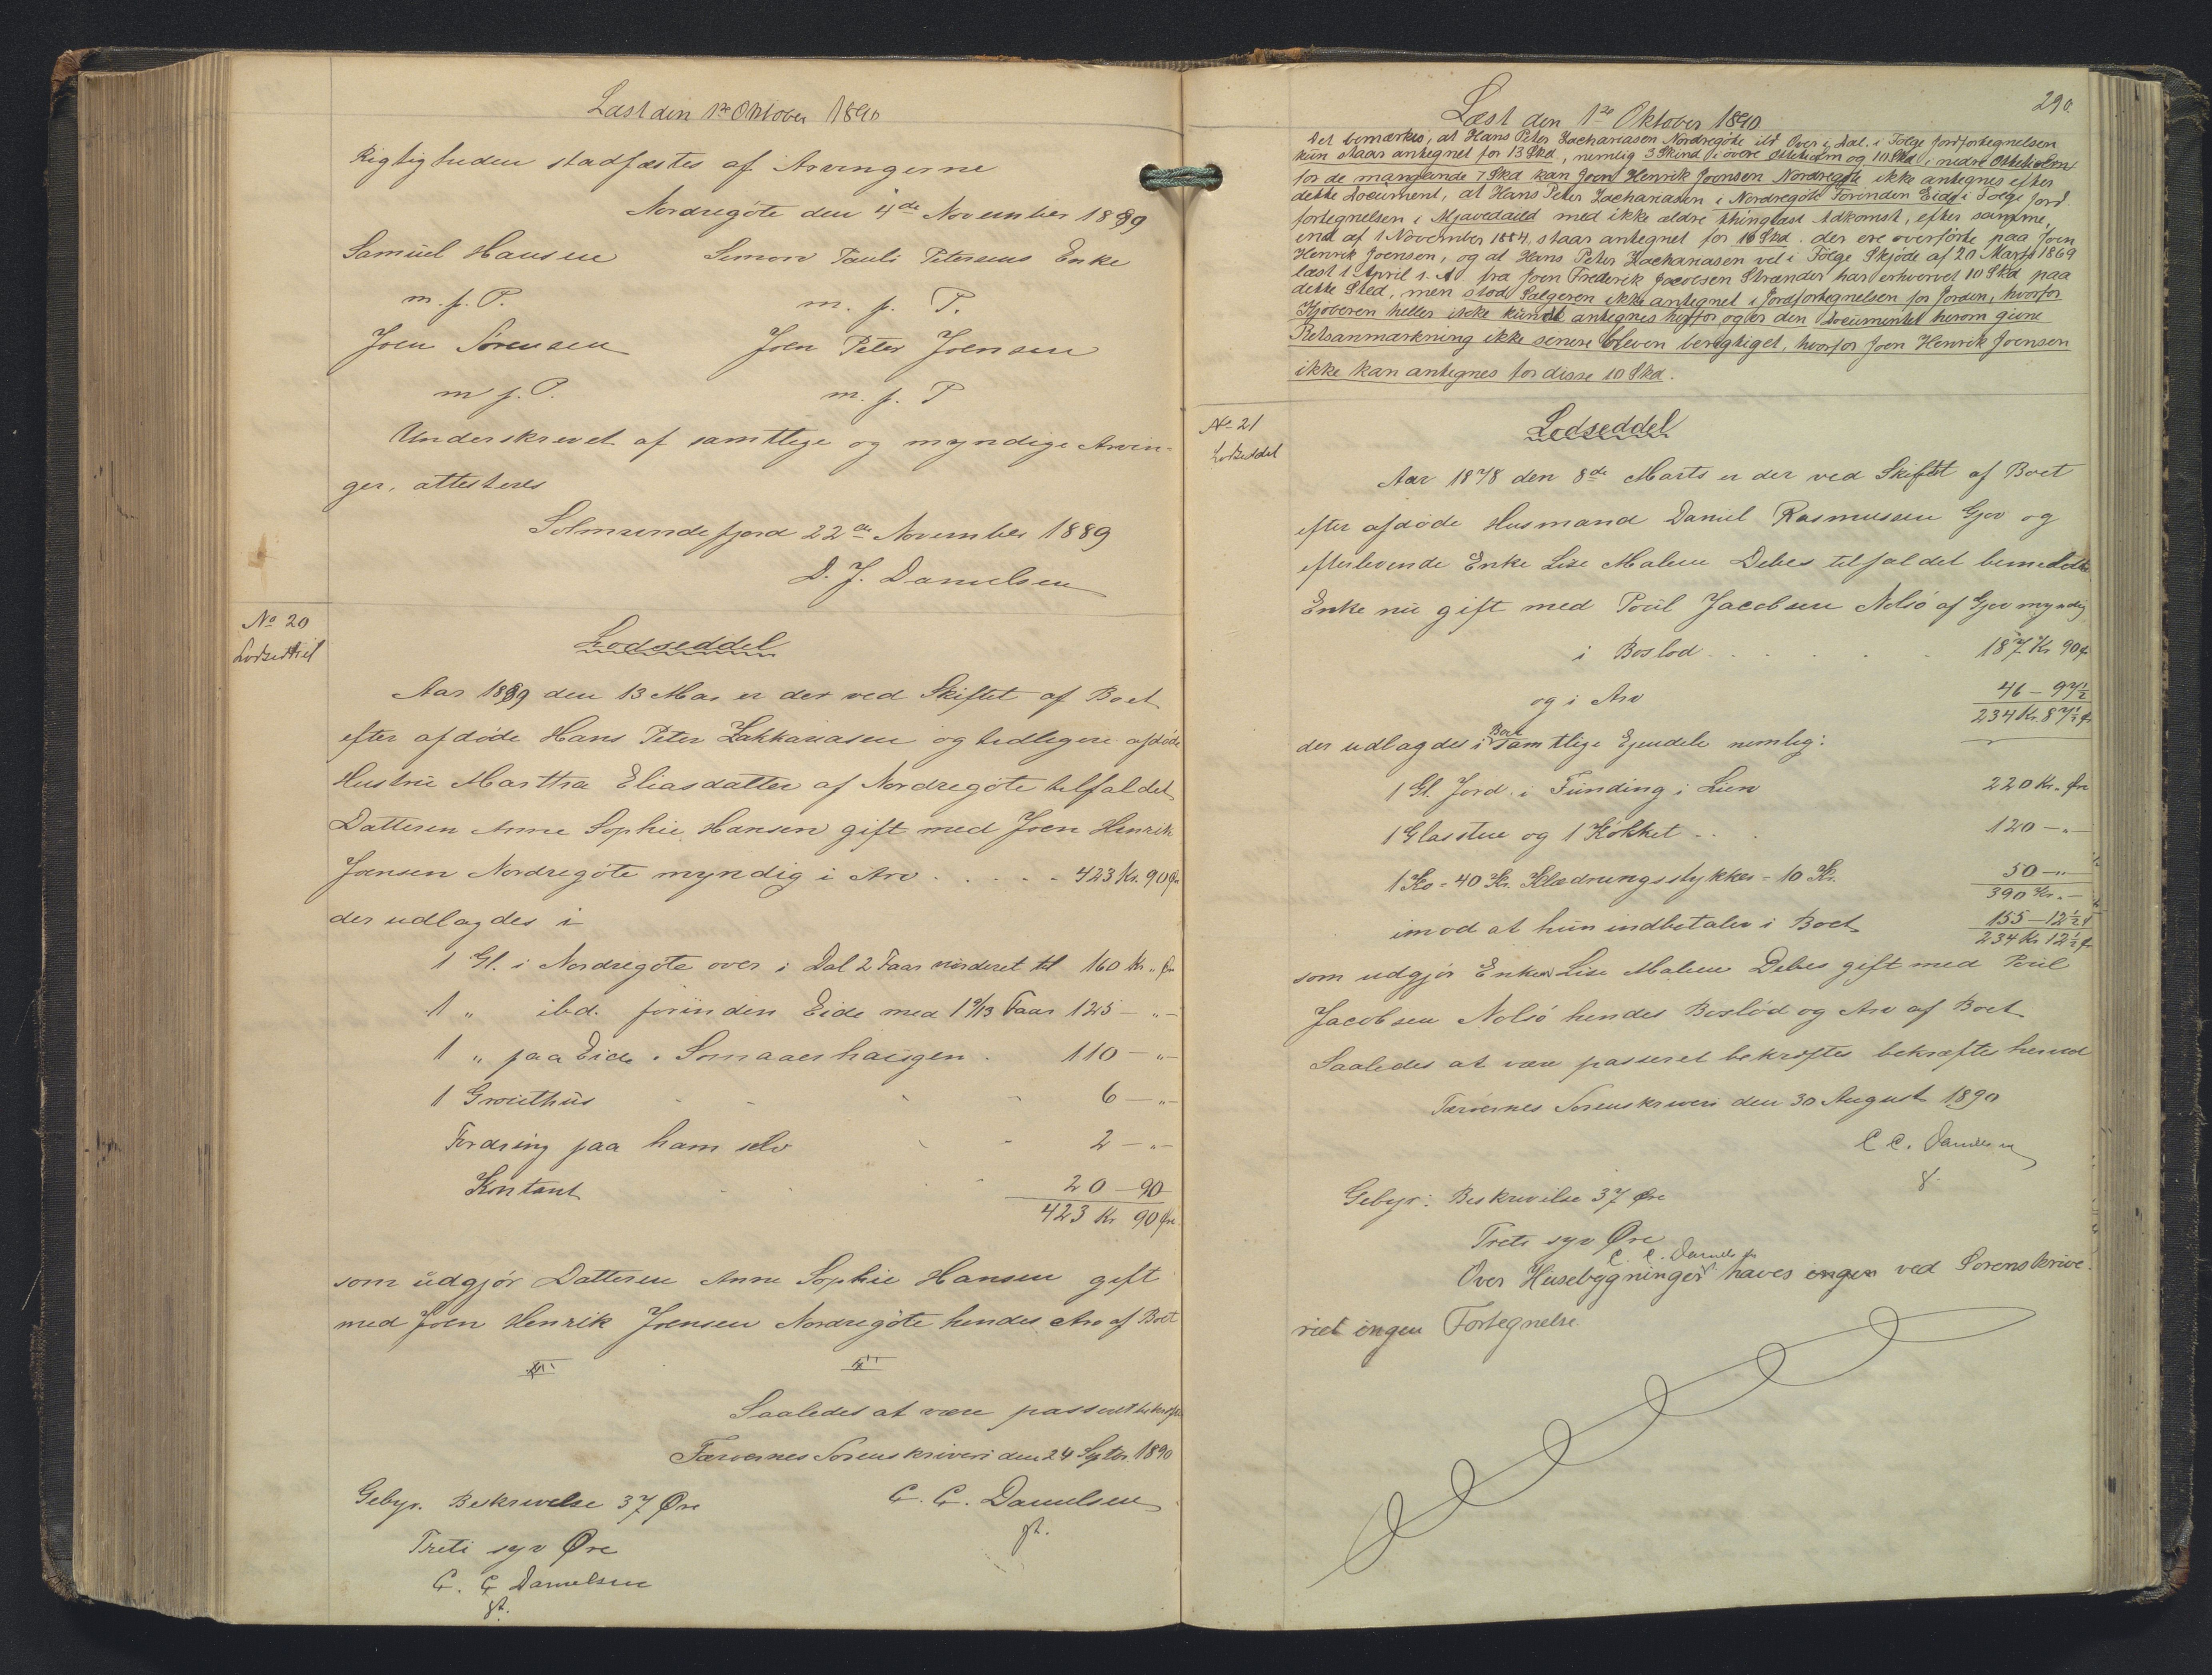 Læst den 1ste Oktober 1890
Rigtigheden stadfæstes af Arvingerne
Nordregöte den 4de November 1889
Samuel Hansen Simon Pauli Petersens Enke
m. p. P. m. p. P.
Joen Sörensen Joen Peter Joensen
m p. P. m. p. P
Underskrevet af samtlige og myndige Arvin-
ger, attesteres
Solmundefjord 22de November 1889
D. J. Danielsen
No 20
Lodseddel
Lodseddel
Aar 1889 den 13 Mar er der ved Skiftet af Boet
efter afdöde Hans Peter Zakkariasen og tidligere afdöde
Hustru Marttha Eliasdatter af Nordregöte tilfaldet
Datteren Anne Sophie Hansen gift med Joen Henrik
Joensen Nordregöte myndig i Arv . . . . . 423 Kr. 90 Ør
der udlagdes i
1 Gl. i Nordregöte over i Dal 2 Faar vurderet til 160 Kr. " Ør
1 " ibd. forinden Eide med 1 9/13 Faar 125 – " –
1 " paa Eide i Somaaerhaugen . 110 – " –
1 Grouthus 6 – " –
Fordring paa ham selv 2 – " –
Kontant 20 – 90
423 Kr 90 Øre
som udgjör Datteren Anne Sophie Hansen gift
med Joen Henrik Joensen Nordregöte hendes Arv af Boet
Saaledes at være passeret bekræftes
Færöernes Sorenskriveri den 24 Septbr. 1890
Gebyr. Beskrivelse 37 Øre C. C. Danielsen
Treti syv Øre gst.
C. C. Danielsen
gst.
290
Læst den 1ste Oktober 1890
Det bemærkes, at Hans Peter Zachariasen Nordregöte ibd Over i Dal. i Fölge Jordfortegnelsen
kun staar antegnet for 13 Skd, nemlig 3 Skind i övre Ottheiem og 10 Skd i nedre Ottheiem
for de manglende 7 Skd kan Joen Henrik Joensen Nordregöte ikke antegnes efter
dette Document, at Hans Peter Zachariasen i Nordregöte Forinden Eide i Fölge Jord-
fortegnelsen i Mjavedaild med ikke ældre thinglæst Adkomst, efter samme,
end af 1 November 1884, staar antegnet for 16 Skd. der ere overförte paa Joen
Henrik Joensen, og at Hans Peter Zachariasen vel i Fölge Skjöde af 20 Marts 1869
læst 1 April s. A. fra Joen Frederik Jacobsen Strænder har erhvervet 10 Skd paa
dette Sted, men stod Sælgeren ikke antegnet i Jordfortegnelsen for Jorden, hvorfor
Kjöberen heller ikke kunde antegnes herfor, og er den Documentet herom givne
Retsanmærkning ikke senere bleven berigtiget, hvorfor Joen Henrik Joensen
ikke kan antegnes for disse 10 Skd.
No 21
Lodseddel
Lodseddel
Aar 1878 den 8de Marts er der ved Skiftet af Boet
efter afdöde Husmand Daniel Rasmussen Gjov og
efterlevende Enke Lise Malene Debes tilfaldet bemeldte
Enke nu gift med Poul Jacobsen Nolsö af Gjov myndig
i Boslod . . . . . 187 Kr 90 Ør
og i Arv 46 – 97½
234 Kr. 87½ Ør
der udlagdes i Boets samtlige Ejendele nemlig:
1 Gl. Jord i Funding i Lien 220 Kr. " Øre
1 Glasstue og 1 Kökket - . . 120 – " –
1 Ko = 40 Kr. Klædningsstykker = 10 Kr. 50 – " –
390 Kr. –
imod at hun indbetaler i Boet 155 – 12½ Ø
234 Kr 12½ Ør
som udgjör Enken Lise Malene Debes gift med Poul
Jacobsen Nolsö hendes Boslod og Arv af Boet
Saaledes at være passeret bekræftes bekræftes herved
Færöernes Sorenskriveri den 30 August 1890
C C. Danielsen
g.
Gebyr: Beskrivelse 37 Øre
Treti syv Øre
C. C. Danielsen
Over Husebygninger haves ingen ved Sorenskrive-
riet ingen Fortegnelse.